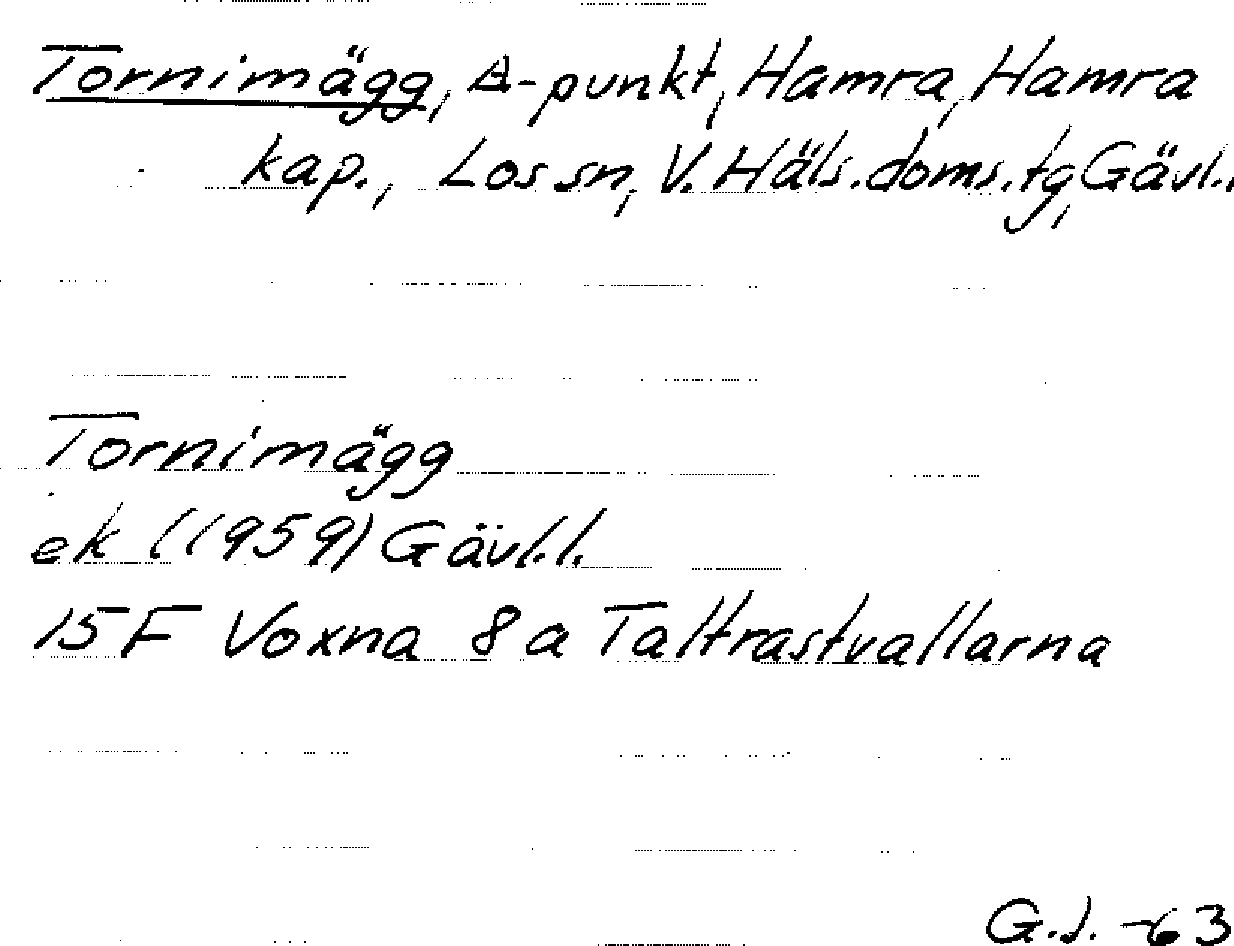 Tornimägg, A-punkt, Hamra, Hamra
kap., Los sn, V. Häls. doms. tg, Gävl.
Tornimägg
ek (1959) Gävl.l.
15 F Voxna 8 a Taltrastvallarna
G.J. -63